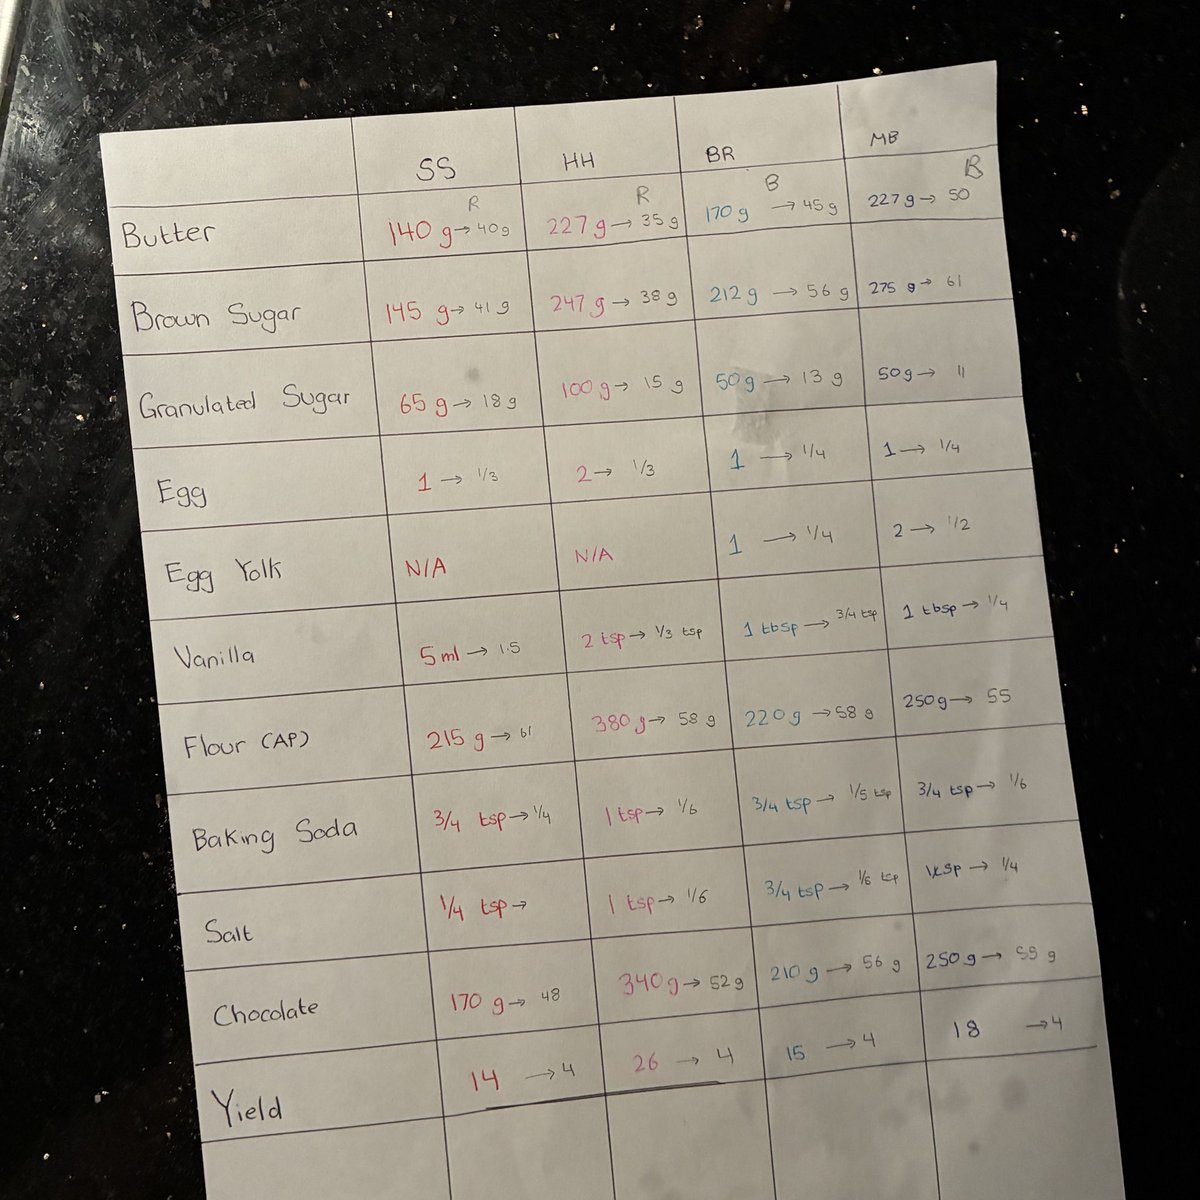 SS HH BR MB
R R B B
Butter 140 g → 40g 227 g → 35 g 170 g → 45 g 227 g → 50
Brown Sugar 145 g → 41 g 247 g → 38 g 212 g → 56 g 275 g → 61
Granulated Sugar 65 g → 18 g 100 g → 15 g 50 g → 13 g 50g → 11
Egg 1 → 1/3 2 → 1/3 1 → 1/4 1 → 1/4
Egg Yolk N/A N/A 1 → 1/4 2 → 1/2
Vanilla 5 ml → 1.5 2 tsp → 1/3 tsp 1 tbsp → 3/4 tsp 1 tbsp → 1/4
Flour (AP) 215 g → 61 380 g → 58 g 220 g → 58 g 250g → 55
Baking Soda 3/4 tsp → 1/4 1 tsp → 1/6 3/4 tsp → 1/5 tsp 3/4 tsp → 1/6
Salt 1/4 tsp → 1 tsp → 1/6 3/4 tsp → tsp → 1/4
Chocolate 170 g → 48 340 g → 52 g 210 g → 56 g 250 g → 55 g
Yield 14 → 4 26 → 4 15 → 4 18 → 4